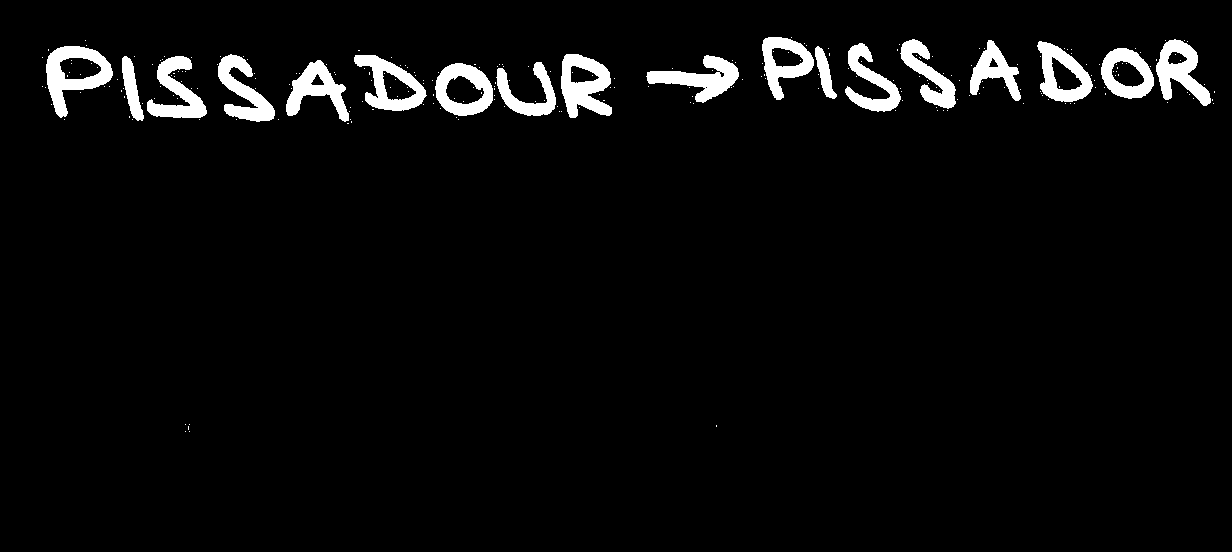 PISSADOUR → PISSADOR